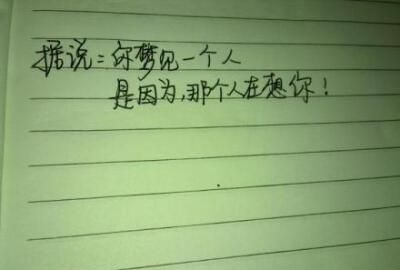 据说:你梦见一个人
是因为,那个人在想你!